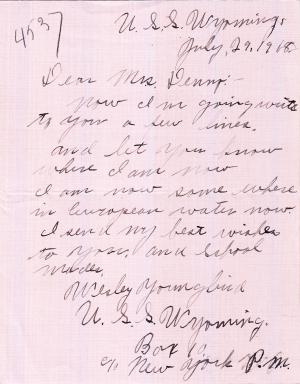 4537
U. S. S. Wyoming.
July 29. 1918
Dear Mrs. Denny:-
Now I'm going write
to you a few lines.
and let you know
where I am now
I am now some where
in European water now.
I send my best wishes
to you, and School
mates.
Wesley Youngbird
U. S. S Wyoming.
Box
c/o New York P.M.